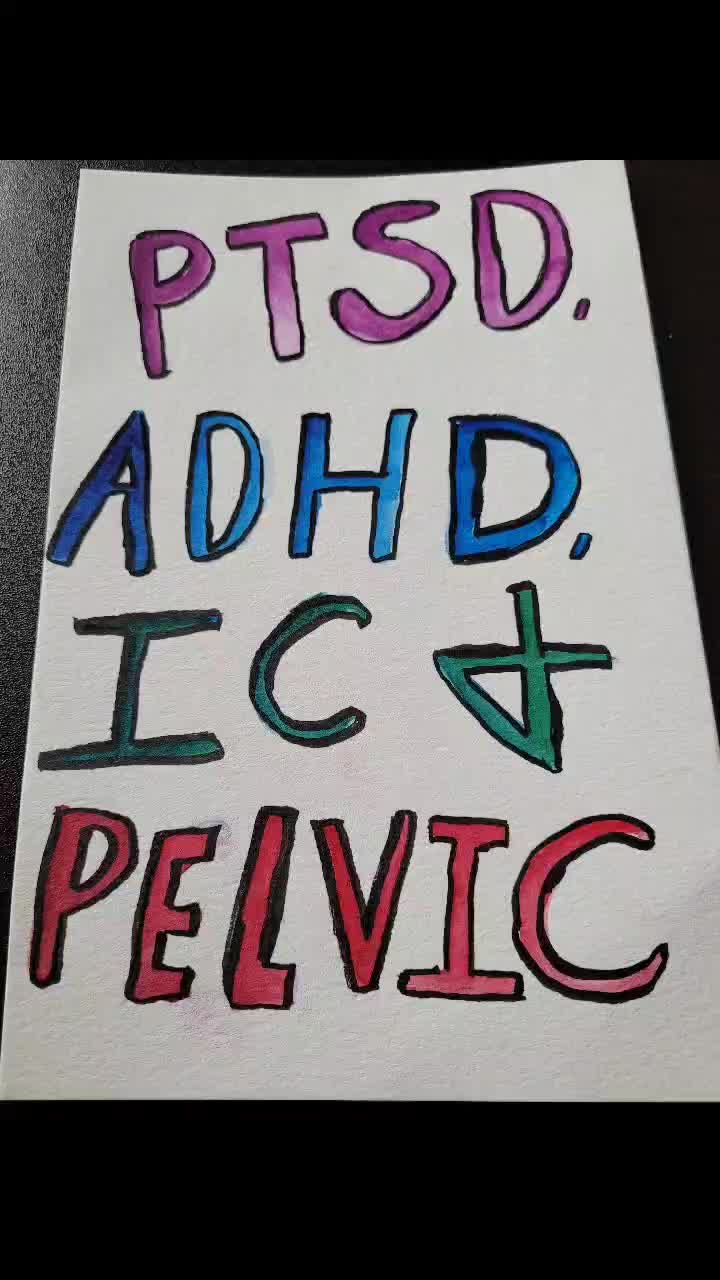 PTSD,
ADHD,
IC &
PELVIC